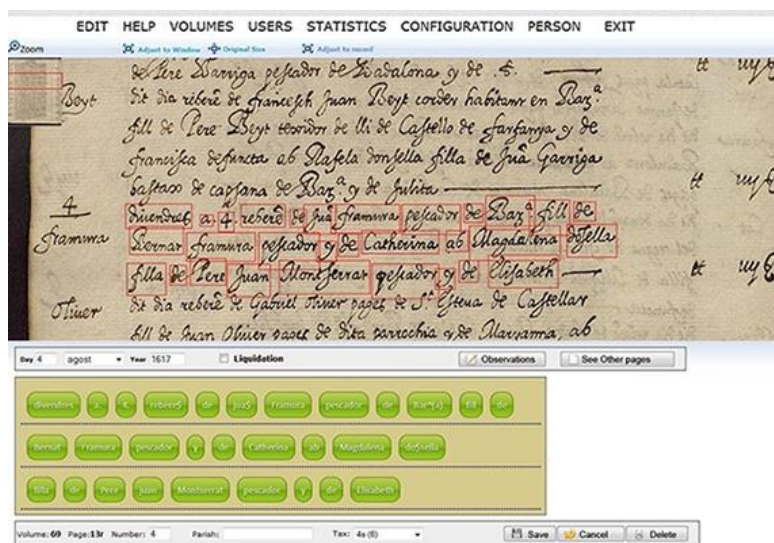 EDIT HELP VOLUMES USERS STATISTICS CONFIGURATION PERSON EXIT
Zoom Adjust to Window Original Size Adjust to record
de Pere Barriga pescador de Badalona y de
Beyt dit dia reberē de francesch Juan Beyt corder habitant en Barᵃ
fill de Pere Beyt texidor de lli de Castello de farfanya y de
francisca defuncta ab Rafela donsella filla de Juā Garriga
bastaix de capsana de Barᵃ y de Julita
4 divendres a 4 reberē de Juā framura pescador de Barᵃ fill de
framura Bernat framura pescador y de Catherina ab Magdalena dōsella
filla de Pere Juan Montserrat pescador y de Elisabeth
Oliver dit dia reberē de Gabriel Oliver pages de Sᵗ Esteva de Castellar
fill de Juan Oliver pages de dita parrochia y de Marianna, ab
Day 4 agost Year 1617 Liquidation Observations See Other pages
divendres a 4 rebere$ de jua$ Framura pescador de Bar^(a) fill de
Bernat Framura pescador y de Catherina ab Magdalena do$sella
filla de Pere juan Montserrat pescador y de Elisabeth
Volume: 69 Page:13r Number: 4 Parish: Tax: 4s (6) Save Cancel Delete